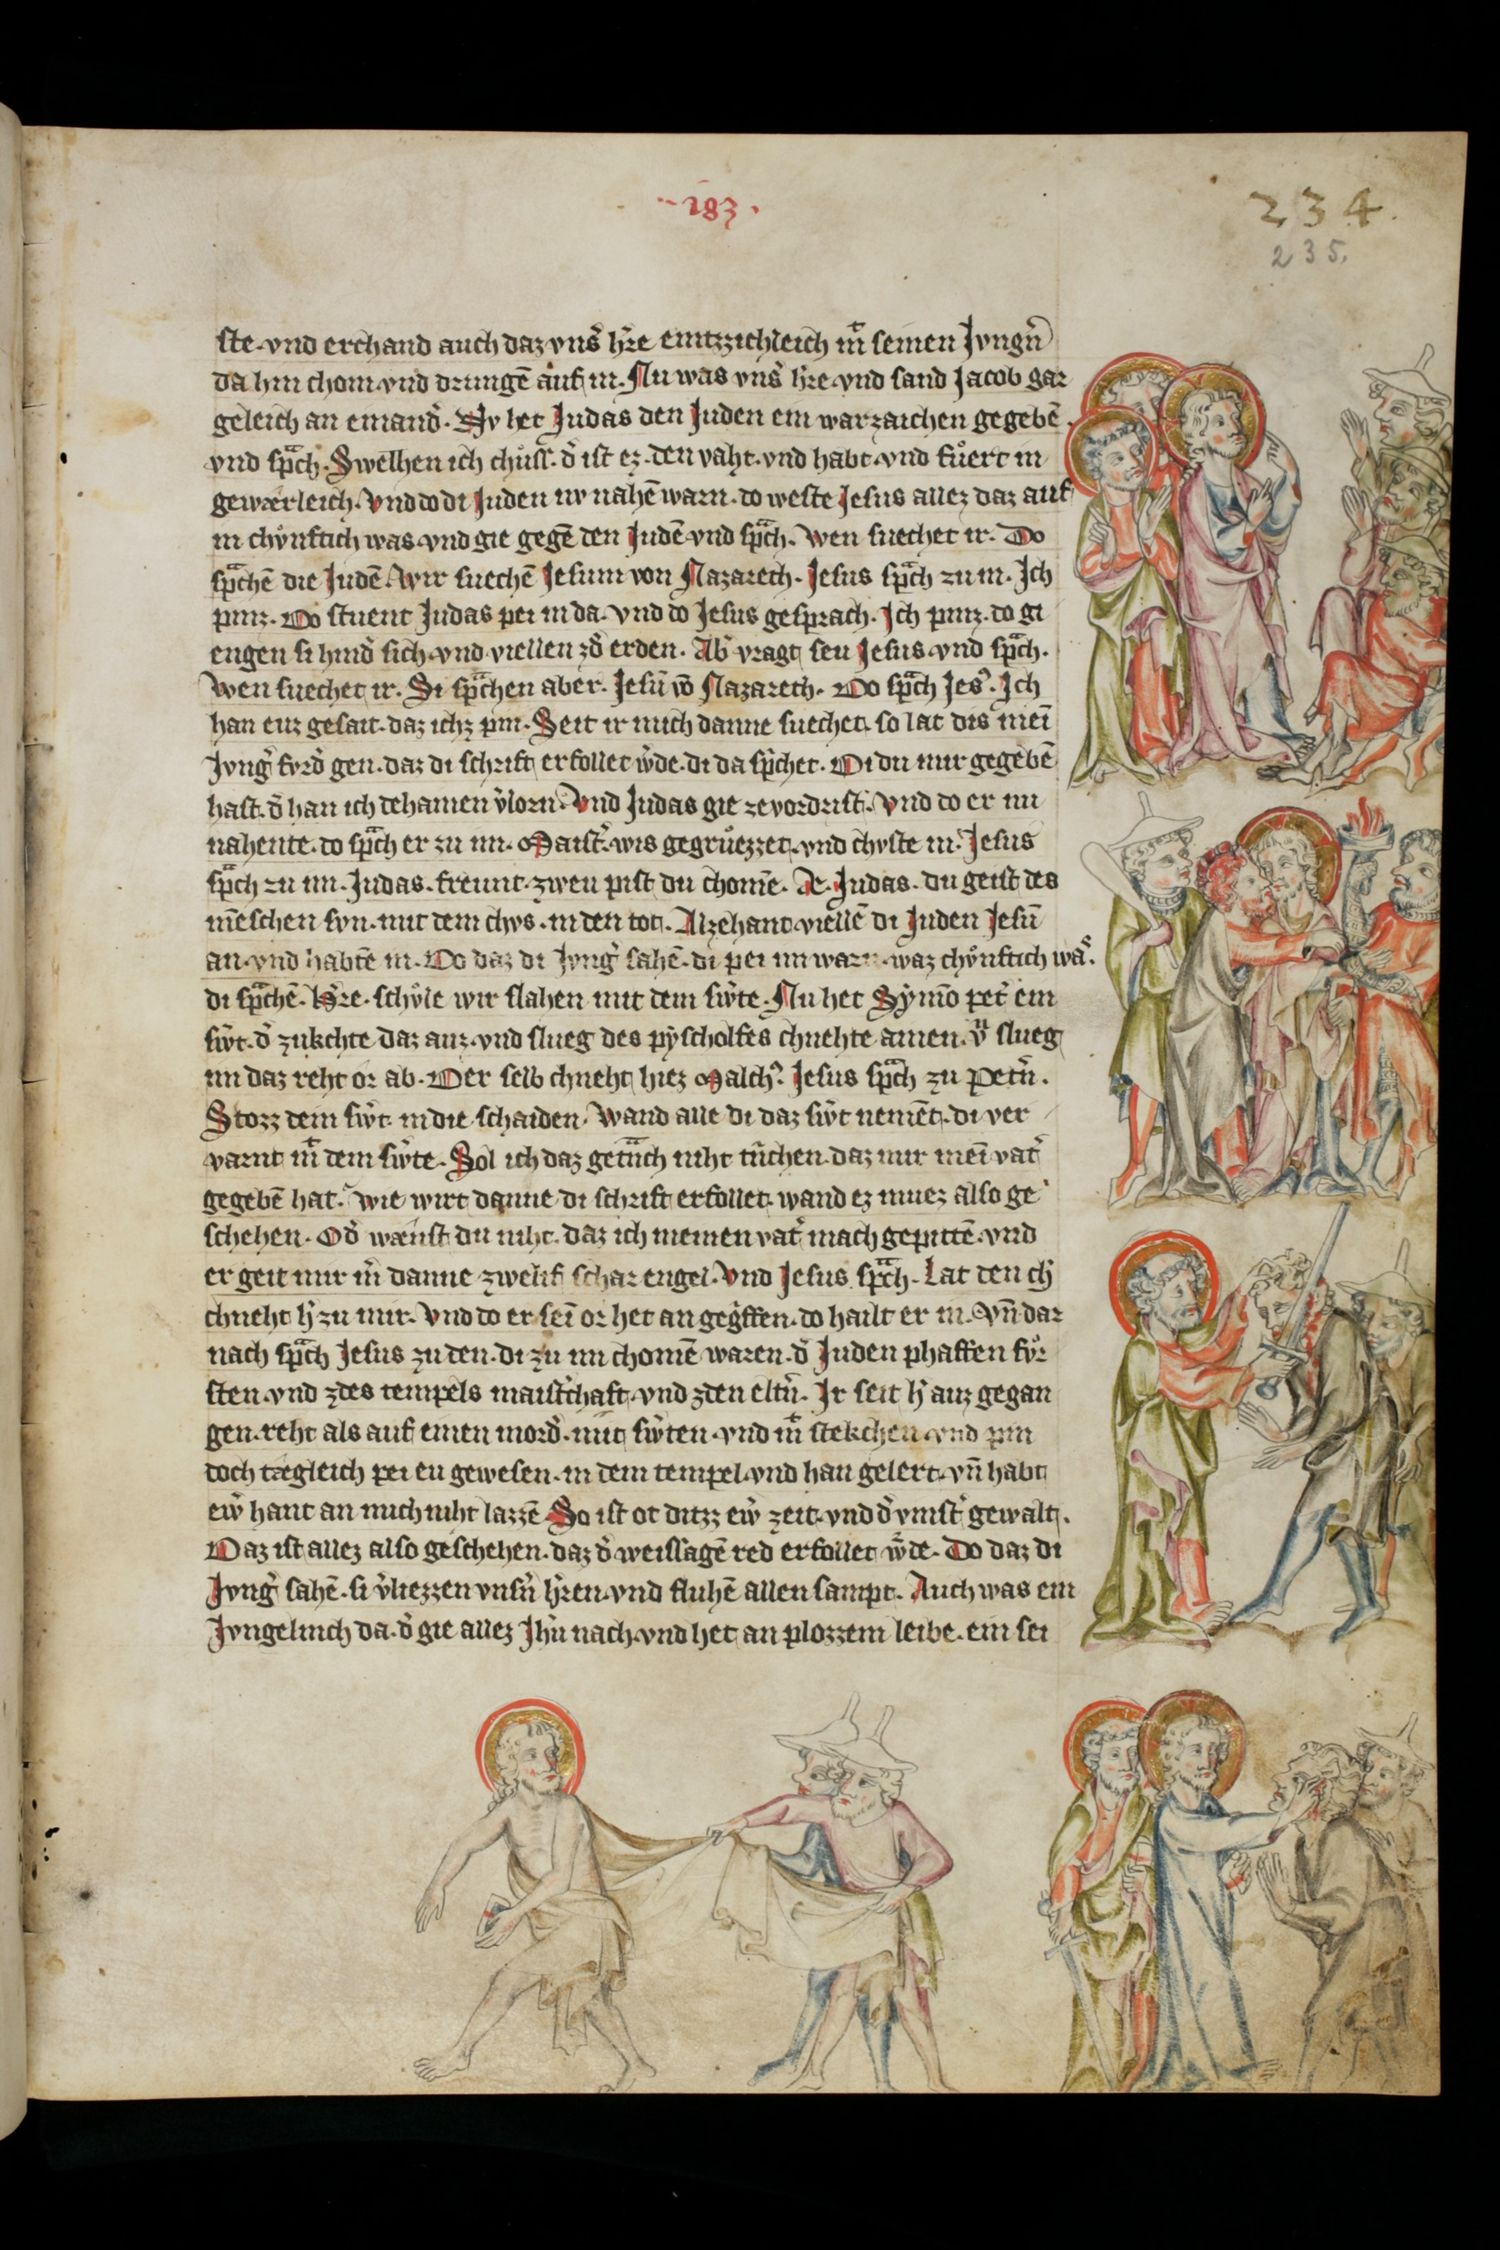 ·283·
234.
235.
ste·vnd erchand auch daz vns͛ h̾re emtzzichleich mᷤ seinen Jvng͛n
da hin chom·vnd drungē auf in·Nu was vns͛ h̾re·vnd sand Jacob gar
geleich an einand͛·Nv het Judas den Juden ein warzaichen gegebē·
vnd spᷓch·Swelhen ich chuͦss·d͛ ist ez·den vaht·vnd habt·vnd fuͦert in
gewærleich·Vnd do di Juden nv nahē warn·do weste Jesus allez daz auf
in chuͦnftich was·vnd gie gegē den Judē·vnd spᷓch·Wen suechet ir·Do
spᷓchē die Judē·Wir suechē Jesum von Nazareth·Jesus spᷓch zu in·Ich
pinz·Do stuent Judas pei in da·vnd do Jesus gesprach·Ich pinz·do gi
engen si hind͛ sich·vnd viellen zd͛ erden·Ab͛ vragt seu Jesus·vnd spᷓch·
Wen suechet ir·Si spᷓchen aber·Jesū võ Nazareth·Do spᷓch Jes᾽·Ich
han euz gesait·daz ichz pin·Seit ir mich danne suechet·so lat dis meī
Jvng͛ fvrd͛ gen·daz di schrift erfollet w͛de·di da sp͛chet·Di du mir gegebē
hast·d͛ han ich dehainen v͛lorn·Vnd Judas gie zevordrist·Vnd do er im
nahente·do spᷓch er zu im·Maist͛·wis gegruͦezzet·vnd chvste in·Jesus
spᷓch zu im·Judas·freunt·zweu pist du chomē·A·Judas·du geist des
mēschen svn·mit dem chvs·in den tot·Alzehant·viellē di Juden Jesū
an·vnd habtē in·Do daz di Jvng͛ sahē·di pei im warn·waz chuͦnftich wa᷒·
di spᷓchē·H̾re·schuͦle wir slahen mit dem sw͛te·Nu het Symō pet͛ ein
sw͛t·d͛ zukchte daz auz·vnd slueg des pyscholfes chnehte ainen·vᷠ slueg
im daz reht or ab·Der selb chneht hiez Malch᾽·Jesus spᷓch zu Pet͛n·
Stozz dem sw͛t·in die schaiden·Wand alle di daz sw͛t nemēt·di ver
varnt mᷤ dem sw͛te·Sol ich daz getᷓnch niht t͛nchen·daz mir meī vat͛
gegebē hat·Wie wirt danne di schrift erfollet·wand ez muez also ge
schehen·Od͛ wænst du niht·daz ich meinen vat͛ mach gepittē·vnd
er geit mir m͛ danne zwelif schar engel·Vnd Jesus spᷓch·Lat den ch͛
chneht h͛ zu mir·Vnd do er seī or het an geg͛ffen·do hailt er in·Vn̄ dar
nach spᷓch Jesus zu den·di zu im chomē waren·d͛ Juden phaffen fuͦr
sten·vnd zdes tempels maist͛schaft·vnd zden elt͛n·Ir seit h͛ auz gegan
gen·reht als auf einen mord͛·mit sw͛ten·vnd mᷤ stekchen·vnd pin
doch tægleich pei eu gewesen·in dem tempel·vnd han gelert·vn̄ habt
ew͛ hant an mich niht lazzē·So ist ot ditzz ew͛ zeit·vnd d͛ vinst͛ gewalt·
Daz ist allez also geschehen·daz d͛ weissagē red erfollet w͛de·Do daz di
Jvng͛ sahē·si v͛liezzen vns͛n h̾ren·vnd fluhē allen sampt·Auch was ein
Jvngelinch da·d͛ gie allez Jh̄u nach·vnd het an plozzem leibe·ein sei